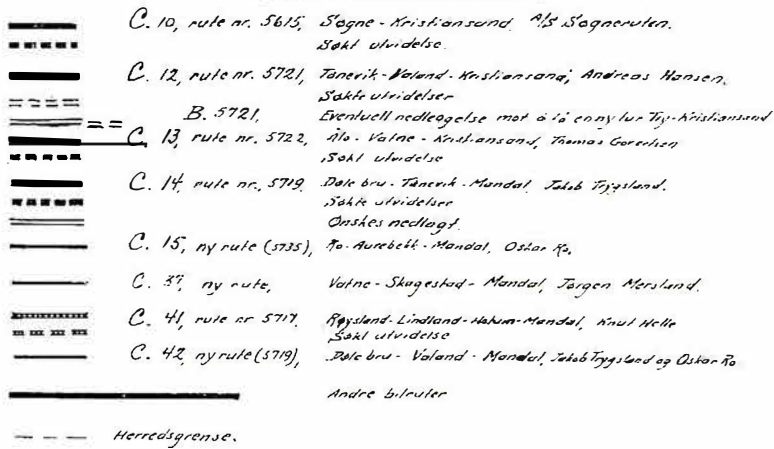 C. 10, rute nr. 5615, Søgne - Kristiansand A/S Søgneruten.
Søkt utvidelse.
C. 12, rute nr. 5721, Tånevik - Valand - Kristiansand, Andreas Hansen.
Søkte utvidelser
B. 5721, Eventuell nedleggelse mot å få en ny tur Try-Kristiansand
C. 13, rute nr. 5722, Ålo - Vatne - Kristiansand, Thomas
Søkt utvidelse
C. 14, rute nr. 5719. Døle bru - Tånevik - Mandal, Jakob Trygsland.
Søkte utvidelser
Ønskes nedlagt.
C. 15, ny rute (5735), Ro - Aurebekk - Mandal, Oskar Ro.
C. 37, ny rute, Vatne - Skagestad - Mandal, Jørgen Mersland.
C. 41, rute nr 5717, Røysland - Lindland - Holum - Mandal, Knut Helle
Søkt utvidelse
C. 42, ny rute (5719), Døle bru - Valand - Mandal, Jakob Trygsland og Oskar Ro
Andre bilruter
Herredsgrense.